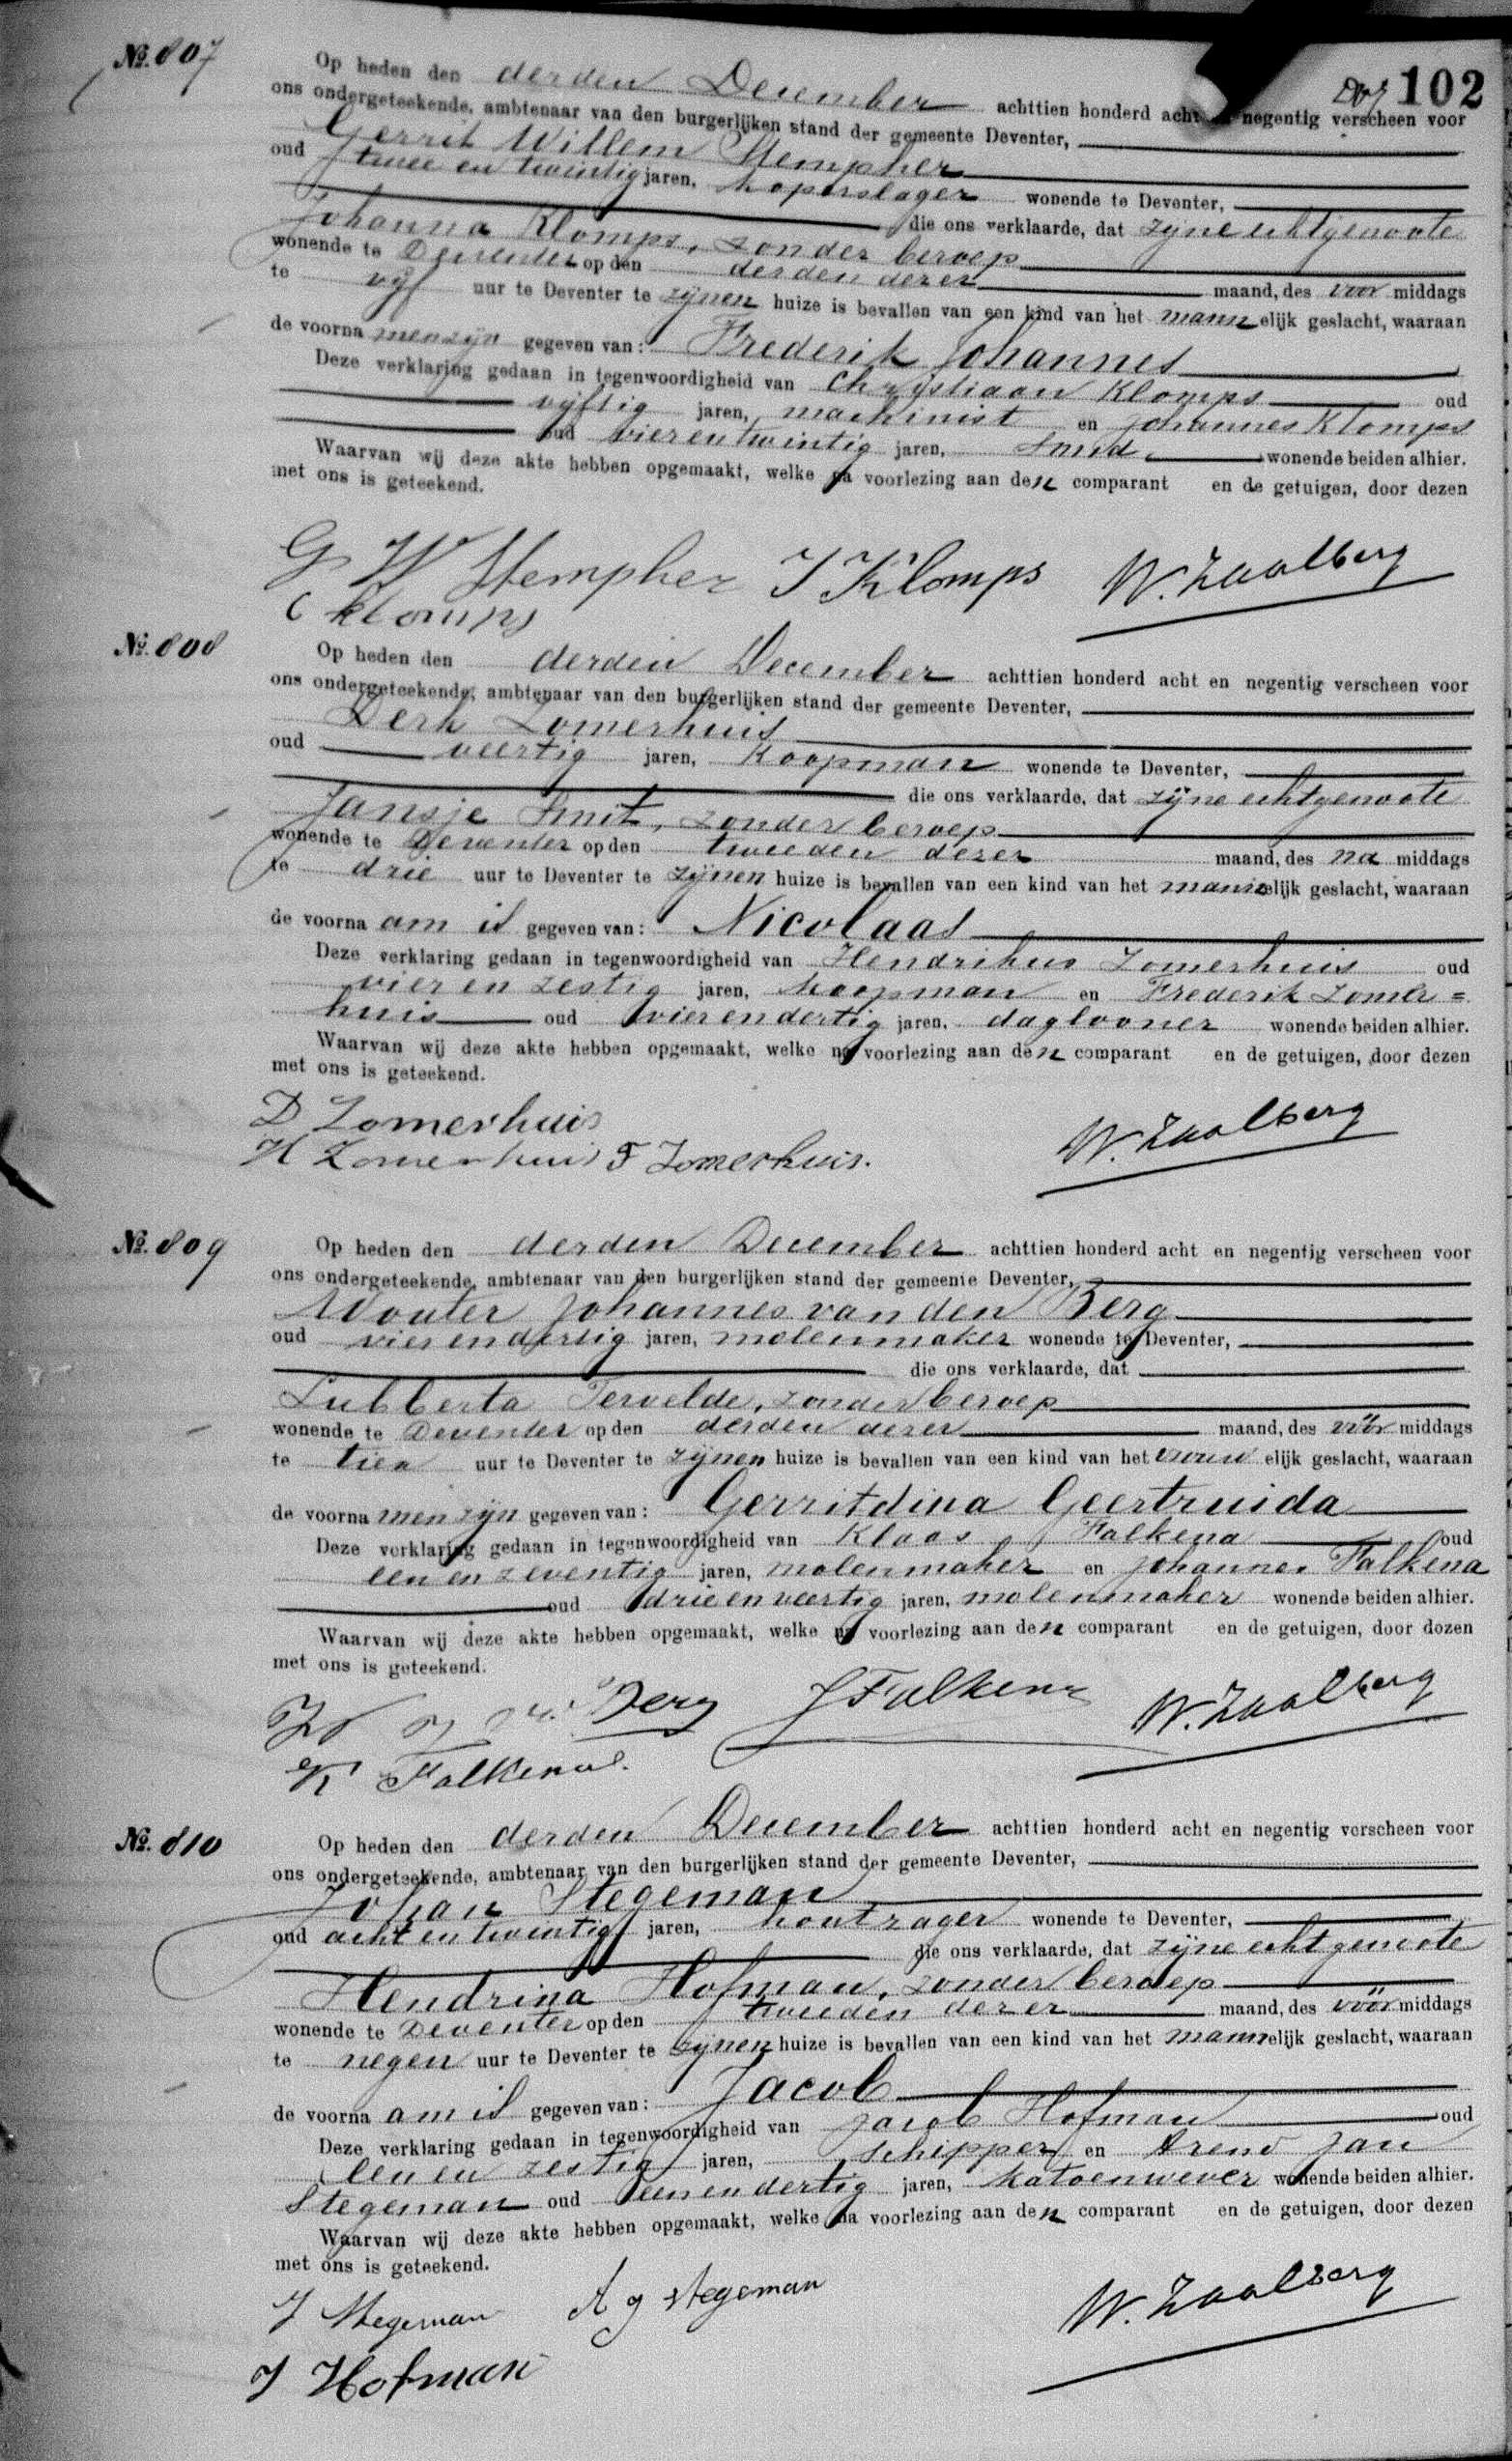 102
No. 807
Op heden den derden December achttien honderd acht en negentig verscheen voor
ons ondergeteekende, ambtenaar van den burgerlijken stand der gemeente Deventer,
Gerrit Willem Stempher
oud twee en twintig jaren, koperslager wonende te Deventer,
die ons verklaarde, dat zijne echtgenoote
Johanna Klomps, zonder beroep
wonende te Deventer op den derden dezer maand, des voor middags
te vijf uur te Deventer te zijnen huize is bevallen van een kind van het mannelijk geslacht, waaraan
de voornamen zijn gegeven van: Frederik Johannes
Deze verklaring gedaan in tegenwoordigheid van Chrystiaan Klomps oud
vijftig jaren, machinist en Johannes Klomps
oud vierentwintig jaren, smid, wonende beiden alhier.
Waarvan wij deze akte hebben opgemaakt, welke na voorlezing aan den comparant en de getuigen, door dezen
met ons is geteekend.
G W Stempher J Klomps W. Zaalberg
C Klomps
No. 808
Op heden den derden December achttien honderd acht en negentig verscheen voor
ons ondergeteekende, ambtenaar van den burgerlijken stand der gemeente Deventer,
Derk Zomerhuis
oud veertig jaren, Koopman wonende te Deventer,
die ons verklaarde, dat zijne echtgenoote
Jansje Smit, zonder beroep
wonende te Deventer op den tweeden dezer maand, des na middags
te drie uur te Deventer te zijnen huize is bevallen van een kind van het mannelijk geslacht, waaraan
de voornaam is gegeven van: Nicolaas
Deze verklaring gedaan in tegenwoordigheid van Hendrikus Zomerhuis oud
vier en zestig jaren, koopman en Frederik Zomer=
huis oud vierendertig jaren, daglooner wonende beiden alhier.
Waarvan wij deze akte hebben opgemaakt, welke na voorlezing aan den comparant en de getuigen, door dezen
met ons is geteekend.
D Zomerhuis
H Zomerhuis F Zomerhuis. W. Zaalberg
No. 809
Op heden den derden December achttien honderd acht en negentig verscheen voor
ons ondergeteekende, ambtenaar van den burgerlijken stand der gemeente Deventer,
Wouter Johannes van den Berg
oud vierendertig jaren, molenmaker wonende te Deventer,
die ons verklaarde, dat
Lubberta Tervelde, zonder beroep
wonende te Deventer op den derden dezer maand, des vóór middags
te tien uur te Deventer te zijnen huize is bevallen van een kind van het vrouwelijk geslacht, waaraan
de voornamen zijn gegeven van: Gerritdina Geertruida
Deze verklaring gedaan in tegenwoordigheid van Klaas Falkena oud
een en zeventig jaren, molenmaker en Johannes Falkena
oud drie en veertig jaren, molenmaker wonende beiden alhier.
Waarvan wij deze akte hebben opgemaakt, welke na voorlezing aan den comparant en de getuigen, door dezen
met ons is geteekend.
Berg J Falkena W. Zaalberg
K Falkena.
No. 810
Op heden den derden December achttien honderd acht en negentig verscheen voor
ons ondergeteekende, ambtenaar van den burgerlijken stand der gemeente Deventer,
Johan Stegeman
oud acht en twintig jaren, houtzager wonende te Deventer,
die ons verklaarde, dat zijne echtgenoote
Hendrina Hofman, zonder beroep
wonende te Deventer op den tweeden dezer maand, des vóór middags
te negen uur te Deventer te zijnen huize is bevallen van een kind van het mannelijk geslacht, waaraan
de voornaam is gegeven van: Jacob
Deze verklaring gedaan in tegenwoordigheid van Jacob Hofman oud
een en zestig jaren, schipper en Arend Jan
Stegeman oud eenendertig jaren, katoenwever wonende beiden alhier.
Waarvan wij deze akte hebben opgemaakt, welke na voorlezing aan den comparant en de getuigen, door dezen
met ons is geteekend.
J Stegeman A J Stegeman W. Zaalberg
J Hofman